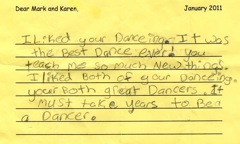 Dear Mark and Karen, January 2011
I Liked your Danceing. It was
the Best Dance ever! you
teach me so much New things.
I liked Both of your Danceing.
your Both great Dancers. It
must take years to Bea
a Dancer.